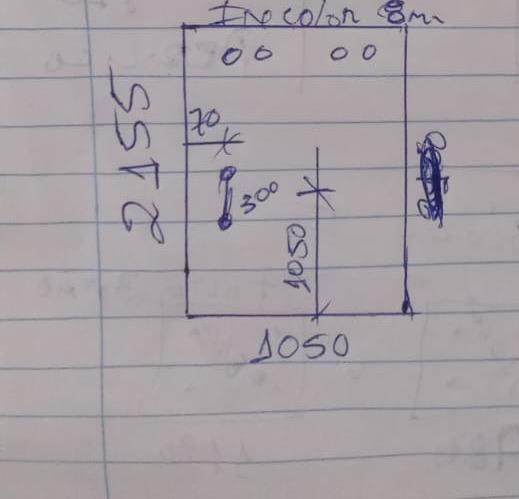 Incolor 8m
2155
70
300
1050
1050